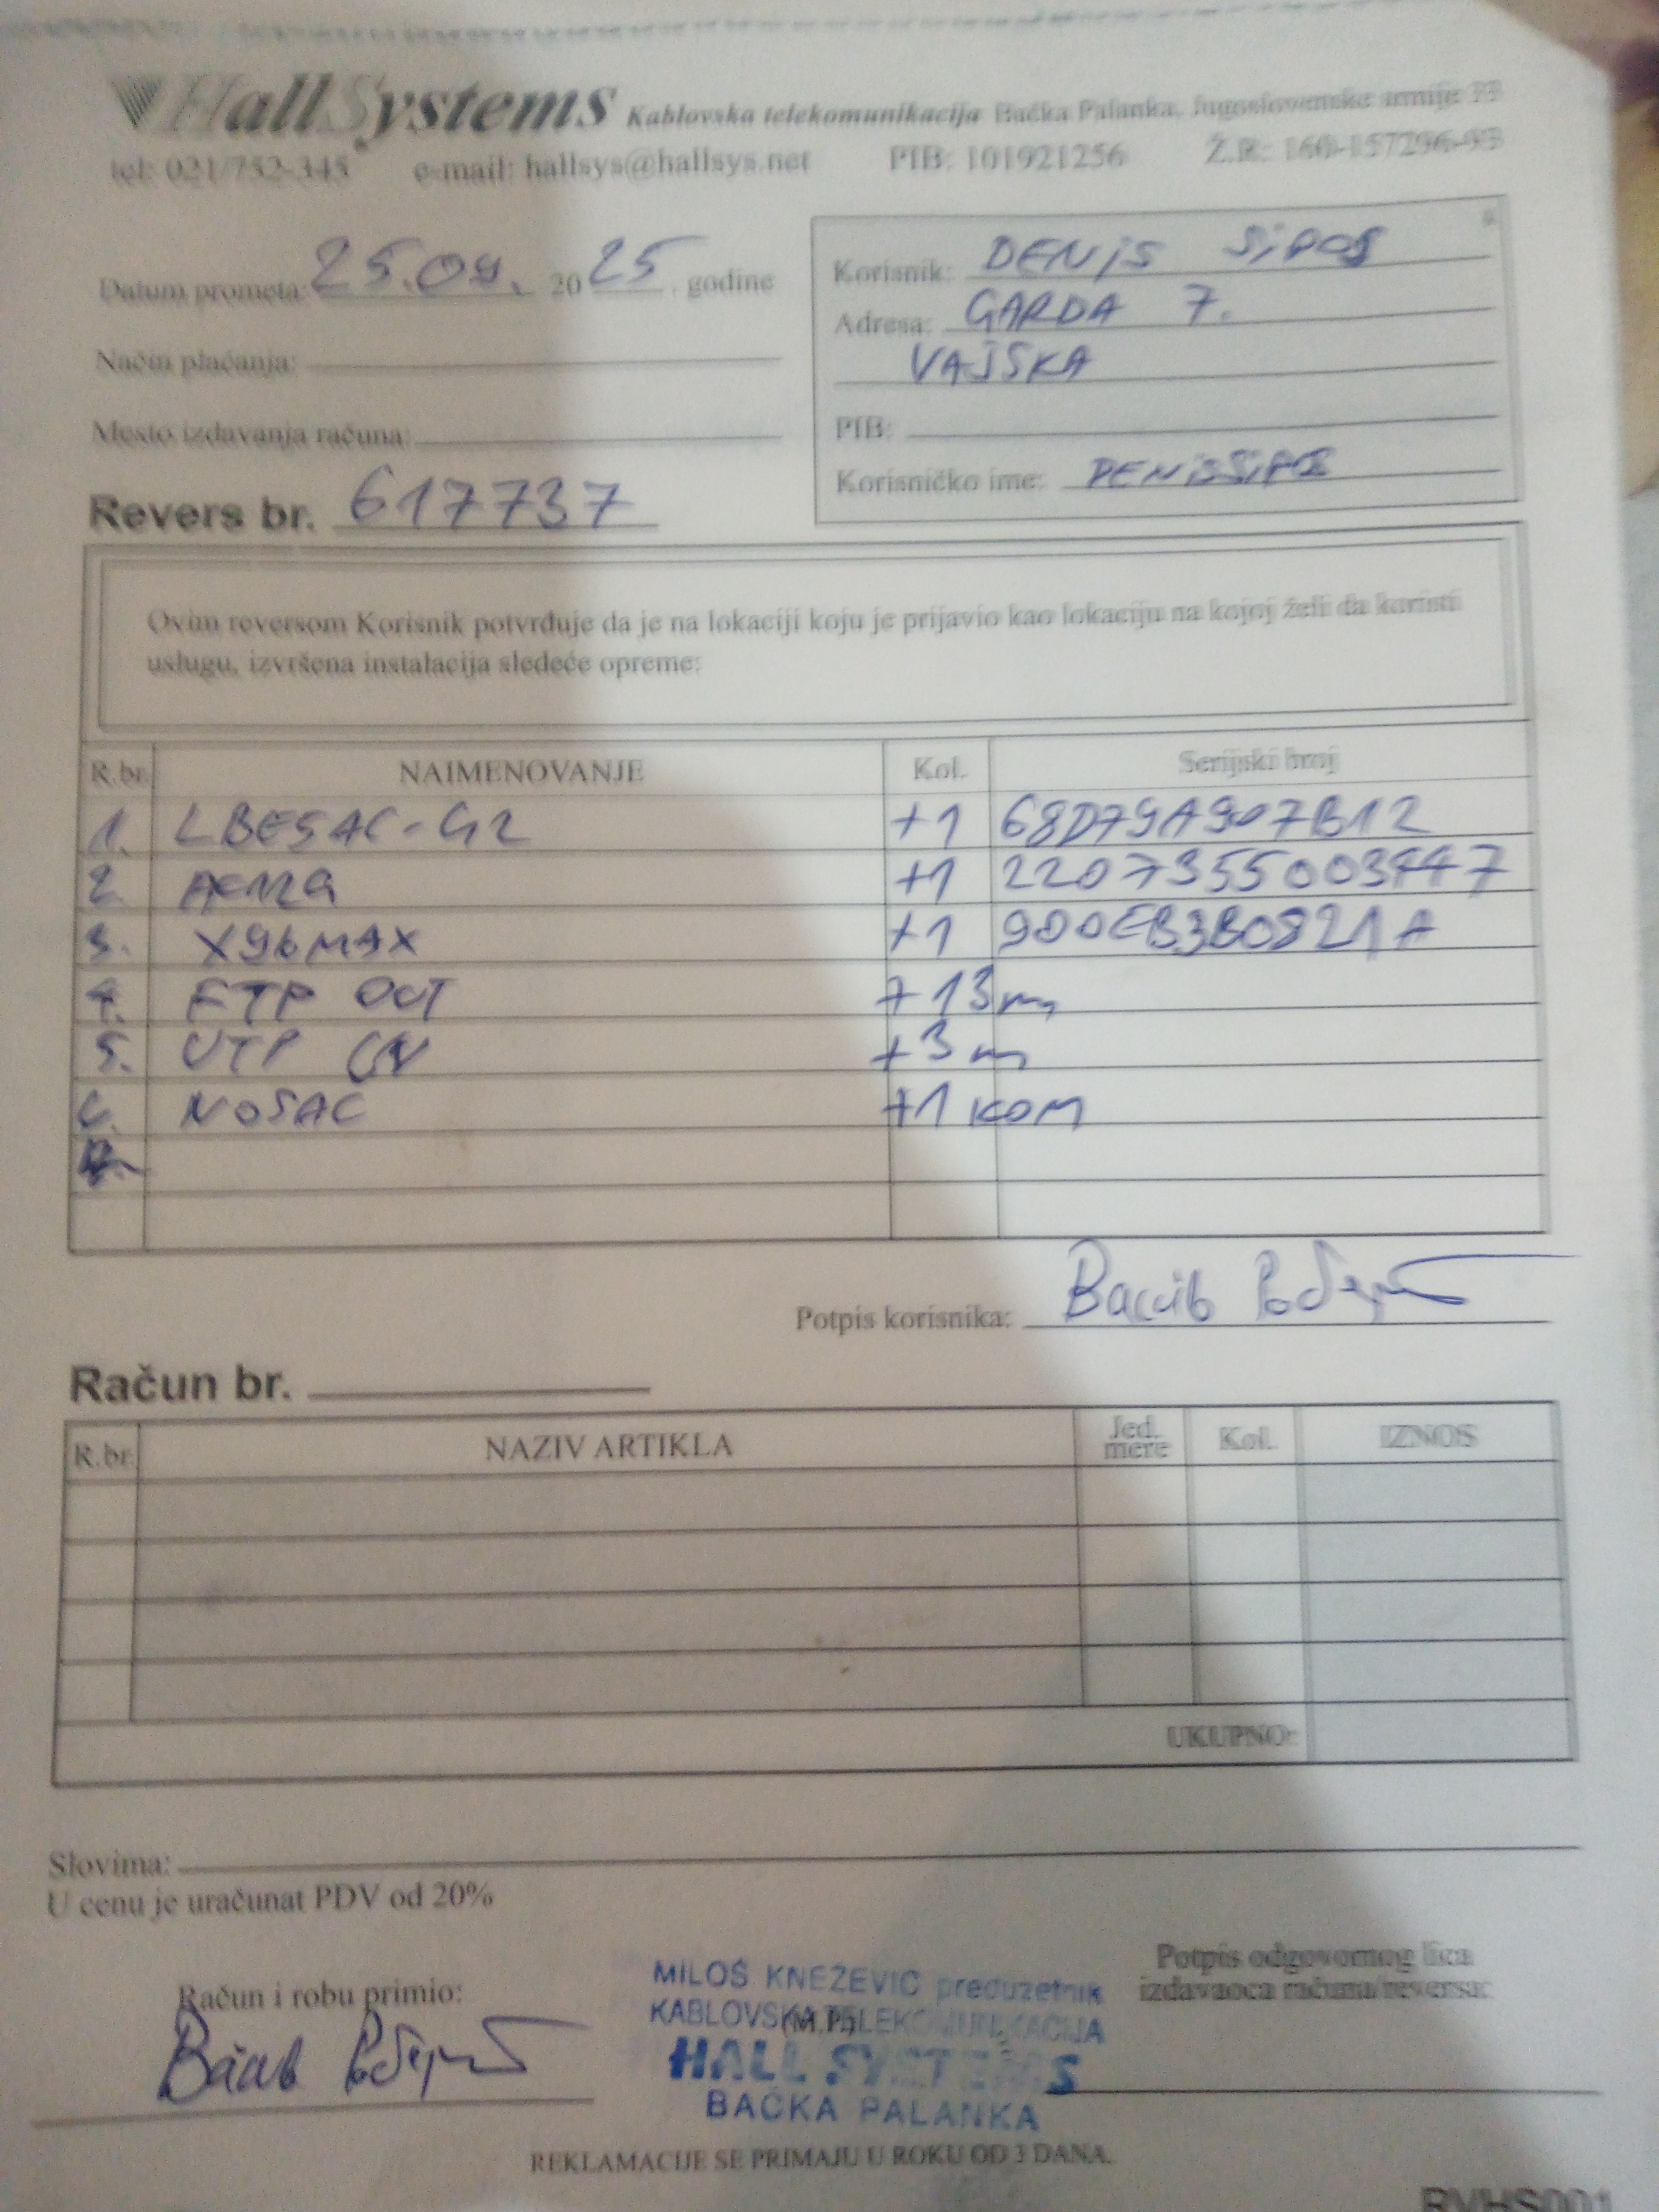 HallSystems Kablovska telekomunikacija Bačka Palanka, Jugoslovenske armije
tel: 021/752-345 e-mail: hallsys@hallsys.net PIB: 101921256 Ž.R.: 160-157296-93
Datum prometa: 25.09. 2025 godine
Način plaćanja:
Mesto izdavanja računa:
Revers br. 617737
Korisnik: DENIS SIPOS
Adresa: GARDA 7.
VAJSKA
PIB:
Korisničko ime:
Ovim reversom Korisnik potvrđuje da je na lokaciji koju je prijavio kao lokaciju na kojoj želi da koristi
uslugu, izvršena instalacija sledeće opreme:
R.br. NAIMENOVANJE Kol. Serijski broj
1. LBE5AC-G2 +1 68D79A907B12
2. +1 2207355003447
3. X96MAX +1 900EB3B0821A
4. FTP OUT +13m
5. UTP +3m
6. NOSAC +1 KOM
7.
Potpis korisnika:
Račun br.
R.br. NAZIV ARTIKLA Jed. mere Kol. IZNOS
UKUPNO:
Slovima:
U cenu je uračunat PDV od 20%
Račun i robu primio:
MILOŠ KNEŽEVIĆ preduzetnik
KABLOVSKA TELEKOMUNIKACIJA
(M.P.)
HALL SYSTEMS
BAČKA PALANKA
Potpis odgovornog lica
izdavaoca računa/reversa:
REKLAMACIJE SE PRIMAJU U ROKU OD 3 DANA.
RVHS001